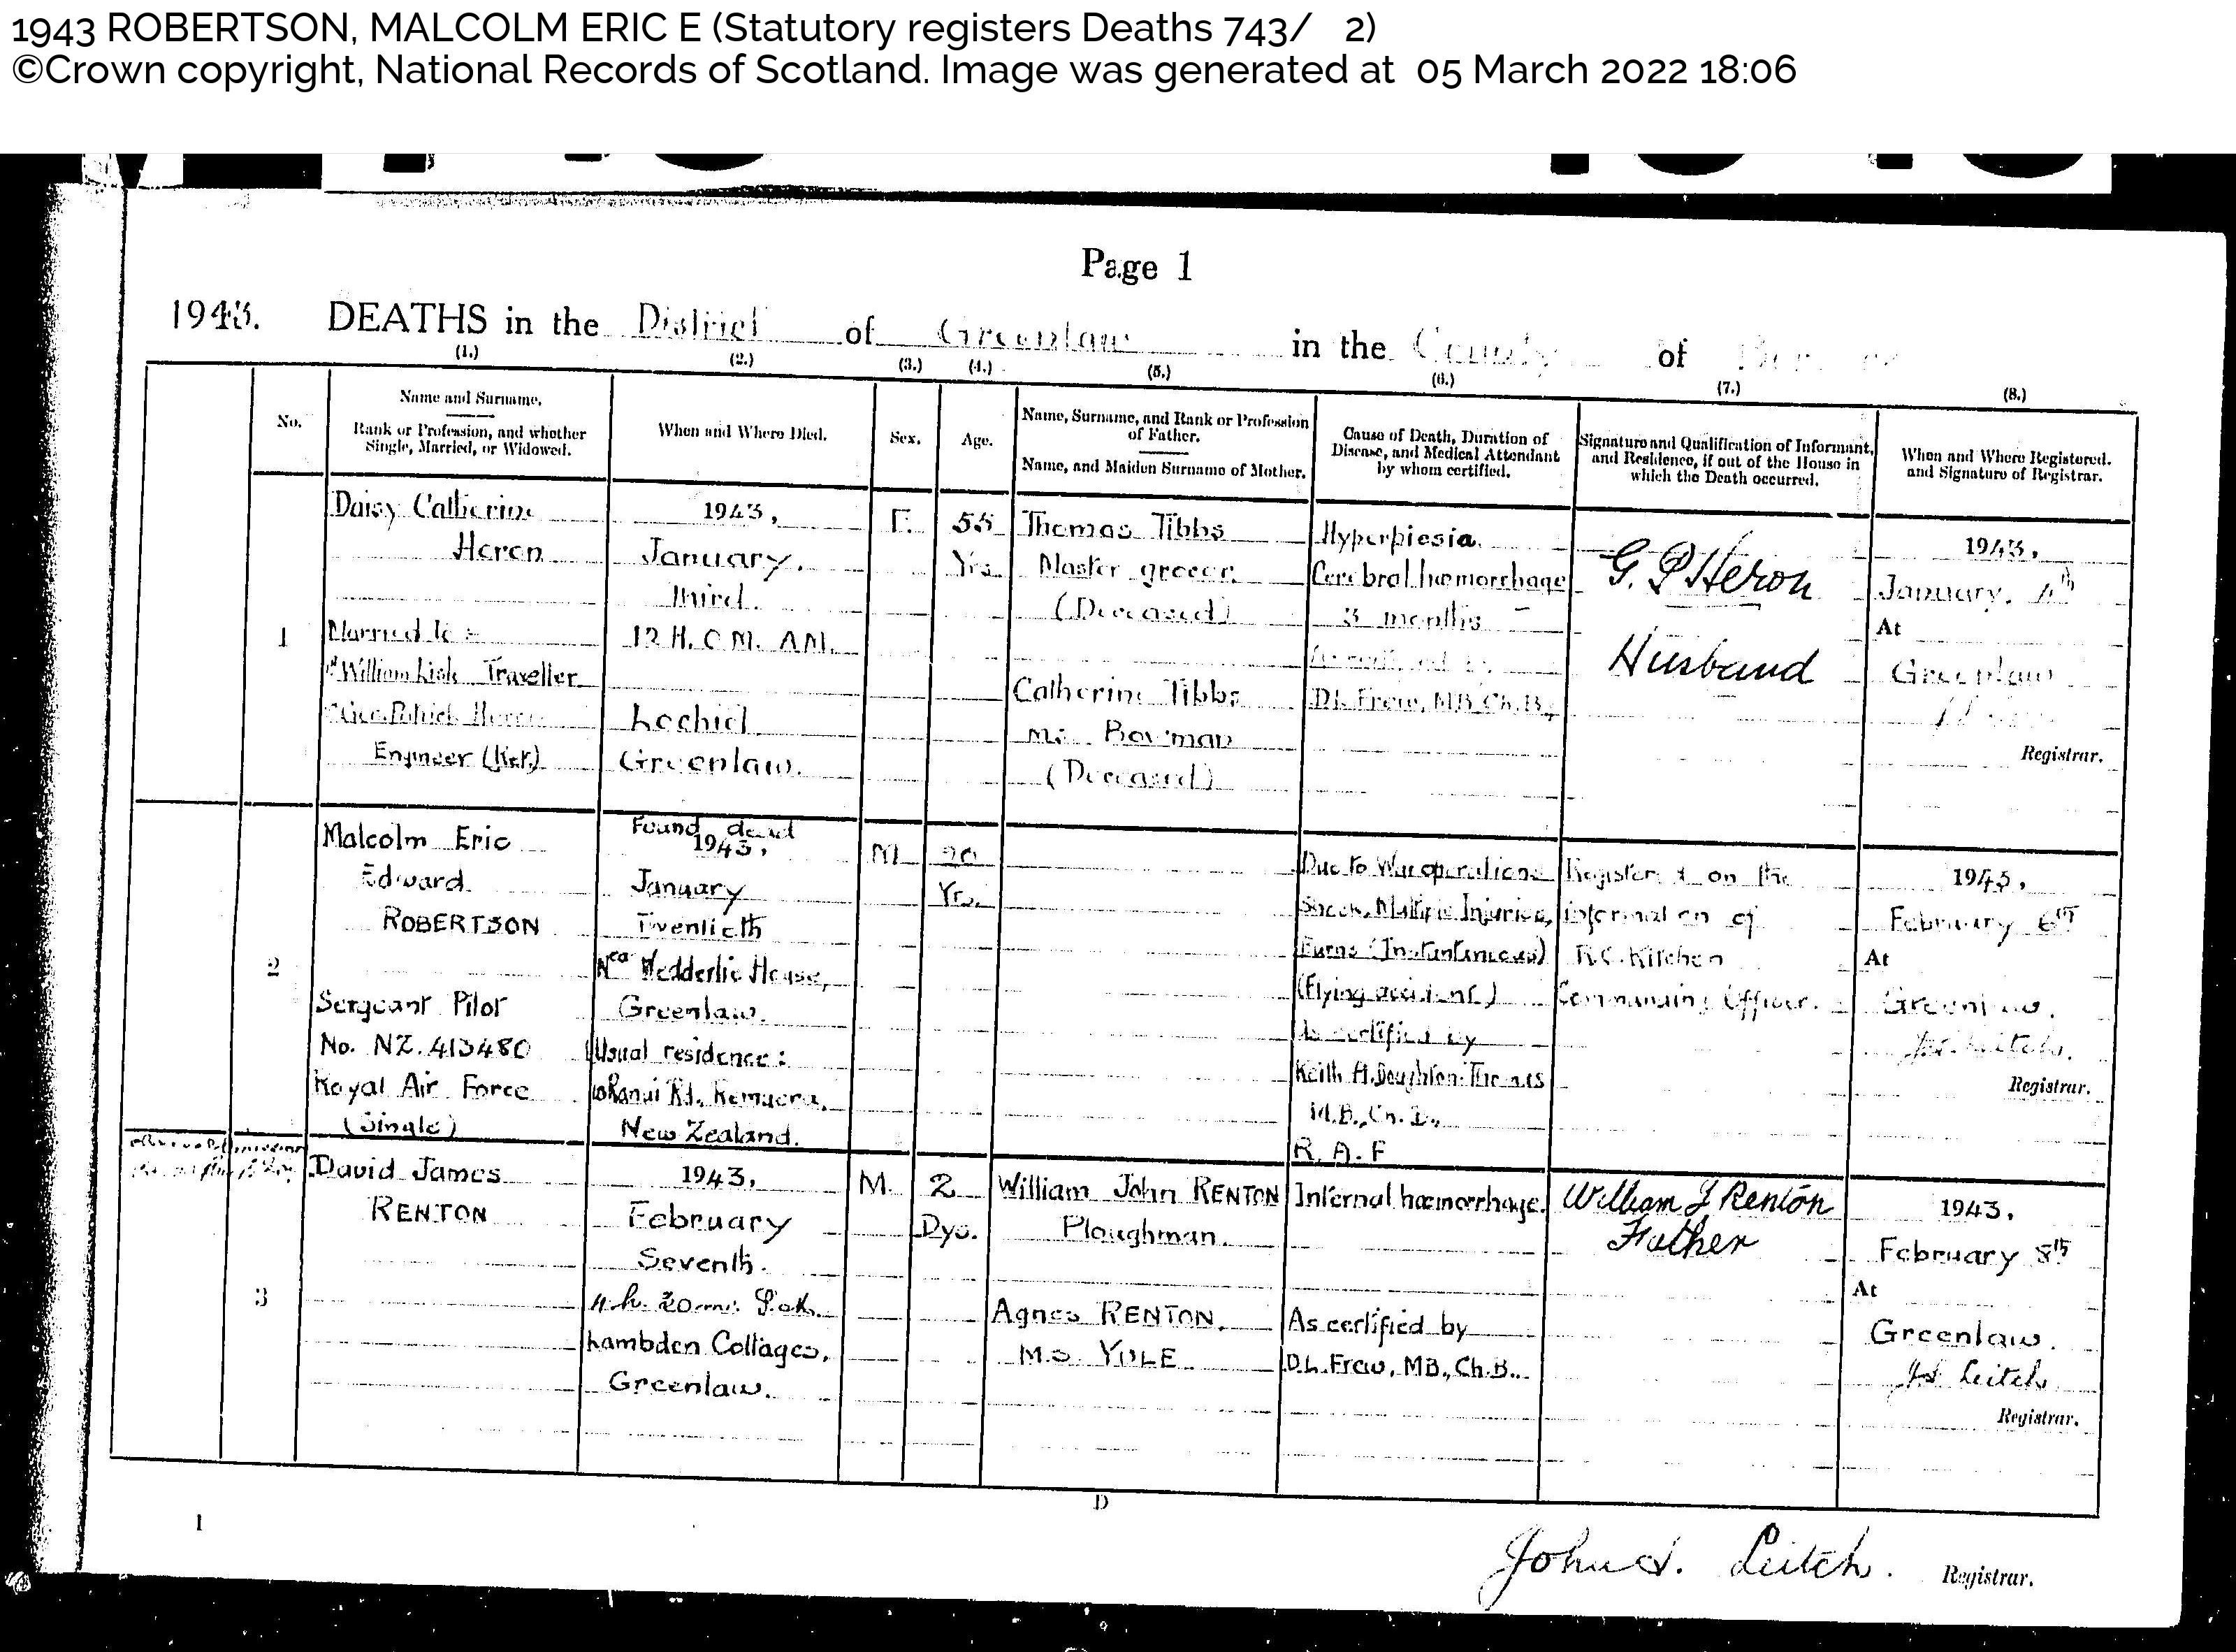 1943 ROBERTSON, MALCOLM ERIC E (Statutory registers Deaths 743/ 2)
©Crown copyright, National Records of Scotland. Image was generated at 05 March 2022 18:06
Page 1
1943. DEATHS in the District of Greenlaw in the County of
(1.) (2.) (3.) (4.) (5.) (6.) (7.) (8.)
No.
Name and Surname.
Rank or Profession, and whether
Single, Married, or Widowed.
When and Where Died.
Sex.
Age.
Name, Surname, and Rank or Profession
of Father.
Name, and Maiden Surname of Mother.
Cause of Death, Duration of
Disease, and Medical Attendant
by whom certified.
Signature and Qualification of Informant,
and Residence, if out of the House in
which the Death occurred.
When and Where Registered.
and Signature of Registrar.
1
Daisy Catherine
Heron
Married to
William Lisle Traveller
Engineer (Ret.)
1943,
January.
Third.
12 H. 0 M. A.M.
Lochiel
Greenlaw.
F.
55
Yrs.
Thomas Tibbs
Master grocer.
(Deceased)
Catherine Tibbs
m.s. Bowman
(Deceased)
Hyperpiesia.
Cerebral hæmorrhage
3 months
D.L. Frew, M.B. Ch.B.,
G. P Heron
Husband
1943,
January. 4th
At
Greenlaw
Registrar.
2
Malcolm Eric
Edward
ROBERTSON
Sergeant Pilot
No. NZ. 413480
Royal Air Force
(Single)
Found dead
1943,
January
Twentieth
Nea Wedderlie House,
Greenlaw.
Usual residence:
Ranui Rd., Remuera,
New Zealand.
M
20
Yrs.
Due to War operations
Shock, Multiple Injuries,
Burns (Instantaneous)
(Flying accident.)
As certified by
Keith A. Doughton-Thomas
M.B., Ch. B.,
R. A. F
Registered on the
information of
R.C. Kitchen
Commanding Officer.
1943,
February 6th
At
Greenlaw.
Leitch.
Registrar.
3
David James
RENTON
1943,
February
Seventh.
4 h. 20 m. P.M.
Lambden Cottages,
Greenlaw.
M.
2
Dys.
William John RENTON
Ploughman.
Agnes RENTON,
M.S. YULE
Internal hæmorrhage.
As certified by
D.L. Frew, MB., Ch.B..
William J Renton
Father
1943,
February 8th
At
Greenlaw.
Leitch
Registrar.
1
D
John S. Leitch. Registrar.